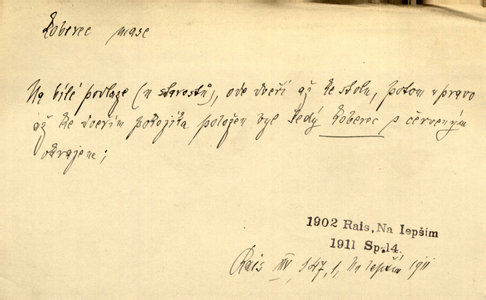 koberec masc
Na bílé podlaze (u starostů), ode dveří až ke stolu, potom vpravo
až ke dveřím pokojíka položen byl šedý koberec s červeným
okrajem;
1902 Rais, Na lepším
1911 Sp.14.
Rais XIV, 147, 1, Na lepším 1911